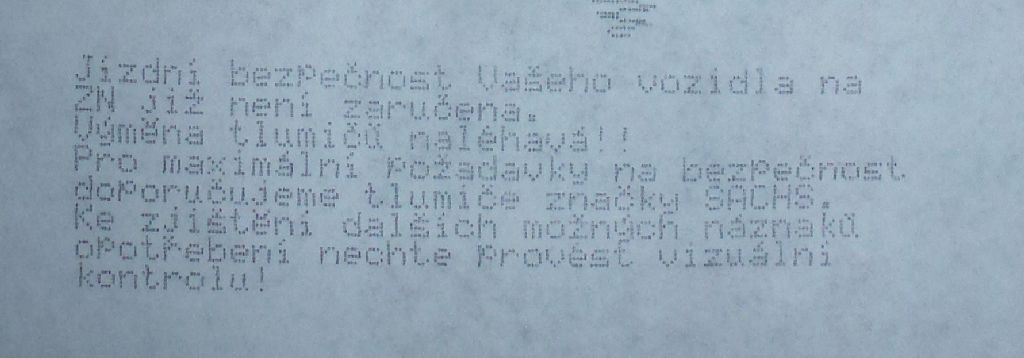 Jízdní bezpečnost Vašeho vozidla na
ZN již není zaručena.
Výměna tlumičů naléhavá!!
Pro maximální požadavky na bezpečnost
doporučujeme tlumiče značky SACHS.
Ke zjištění dalších možných náznaků
opotřebení nechte provést vizuální
kontrolu!